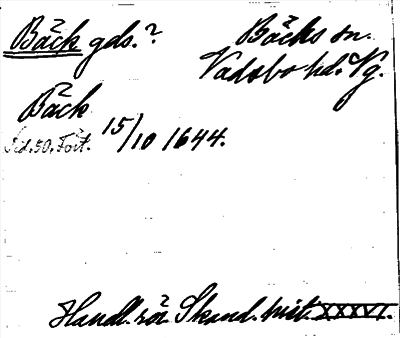 Bäck gds.? Bäcks sn.
Vadsbo hd. Vg.
Bäck
Sid. 50. Fört. 15/10 1644.
Handl. rör Skand. hist. XXXVI.